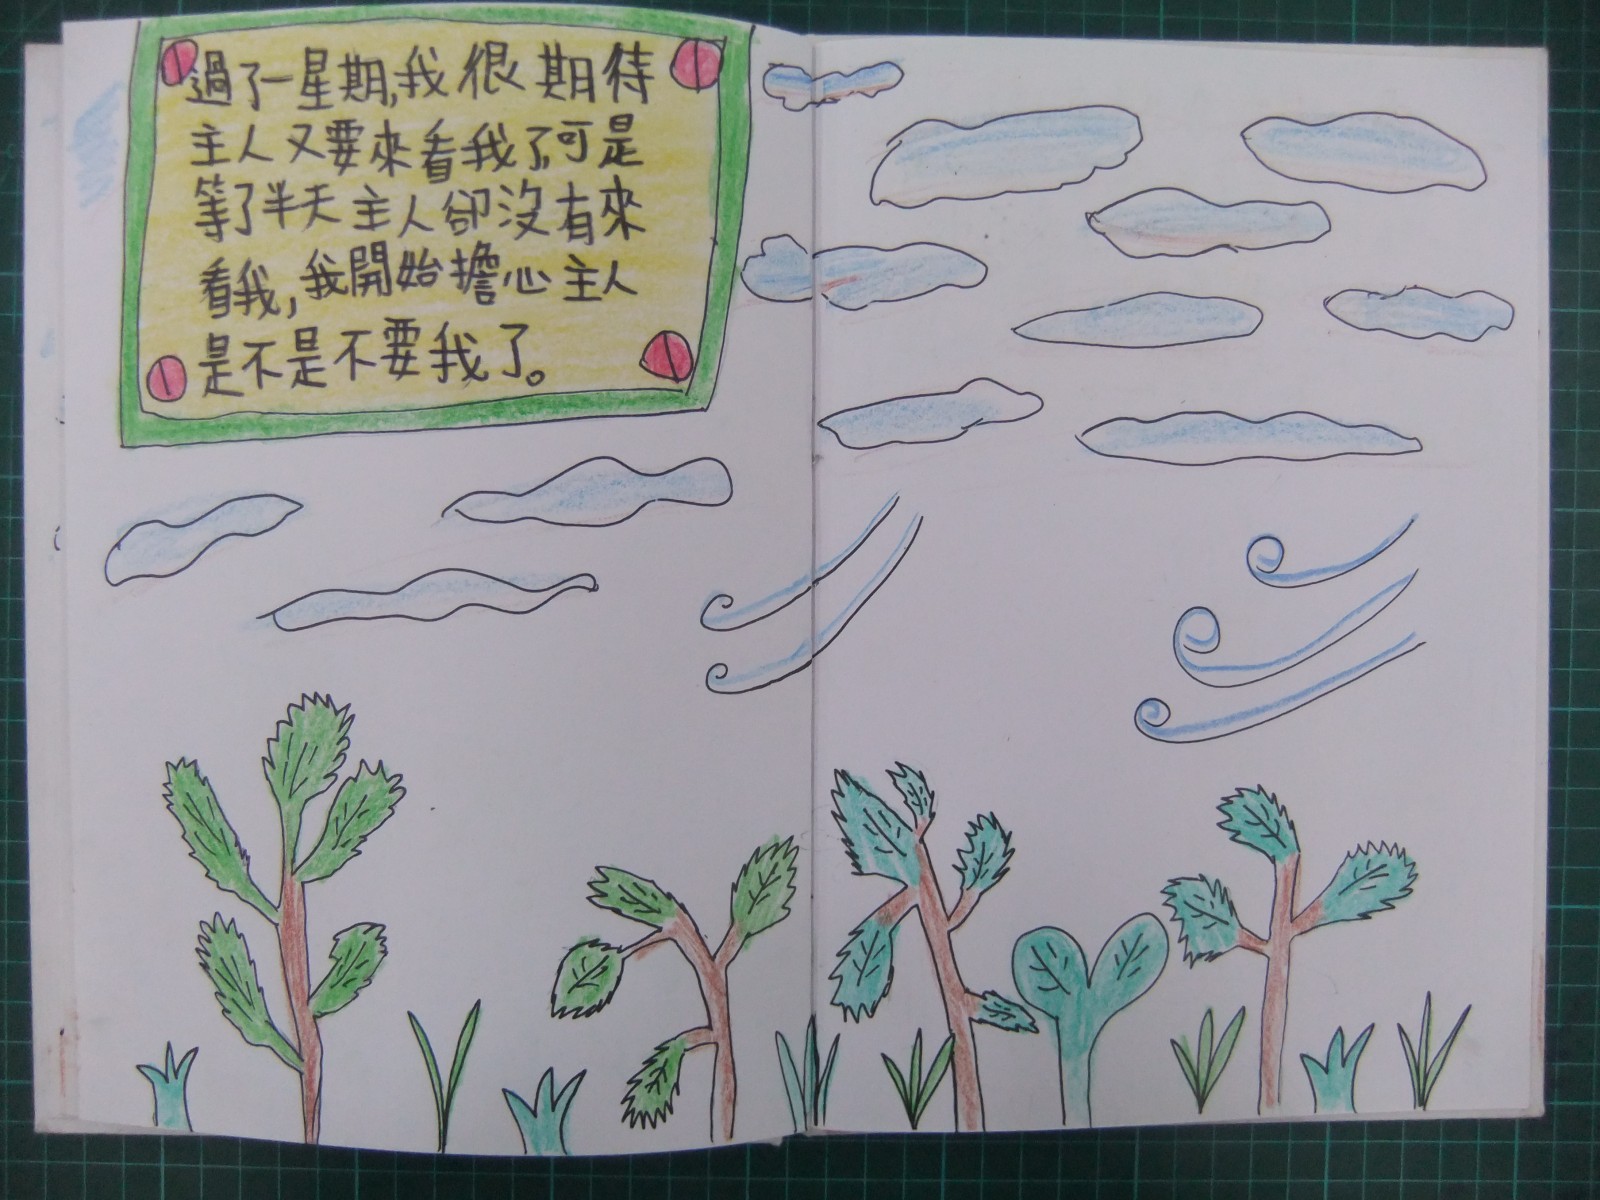 過了一星期,我很期待
主人又要來看我了,可是
等了半天主人卻沒有來
看我,我開始擔心主人
是不是不要我了。